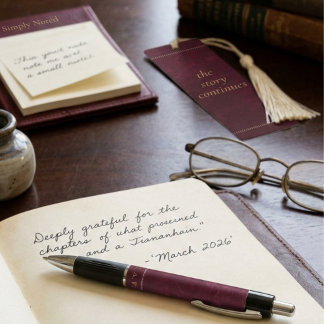 Simply Noted
This you'd note
note me over
a small note!
the
story
continues
Deeply grateful for the
chapters of what proserned
and a Tiananhain."
-"March 2026"